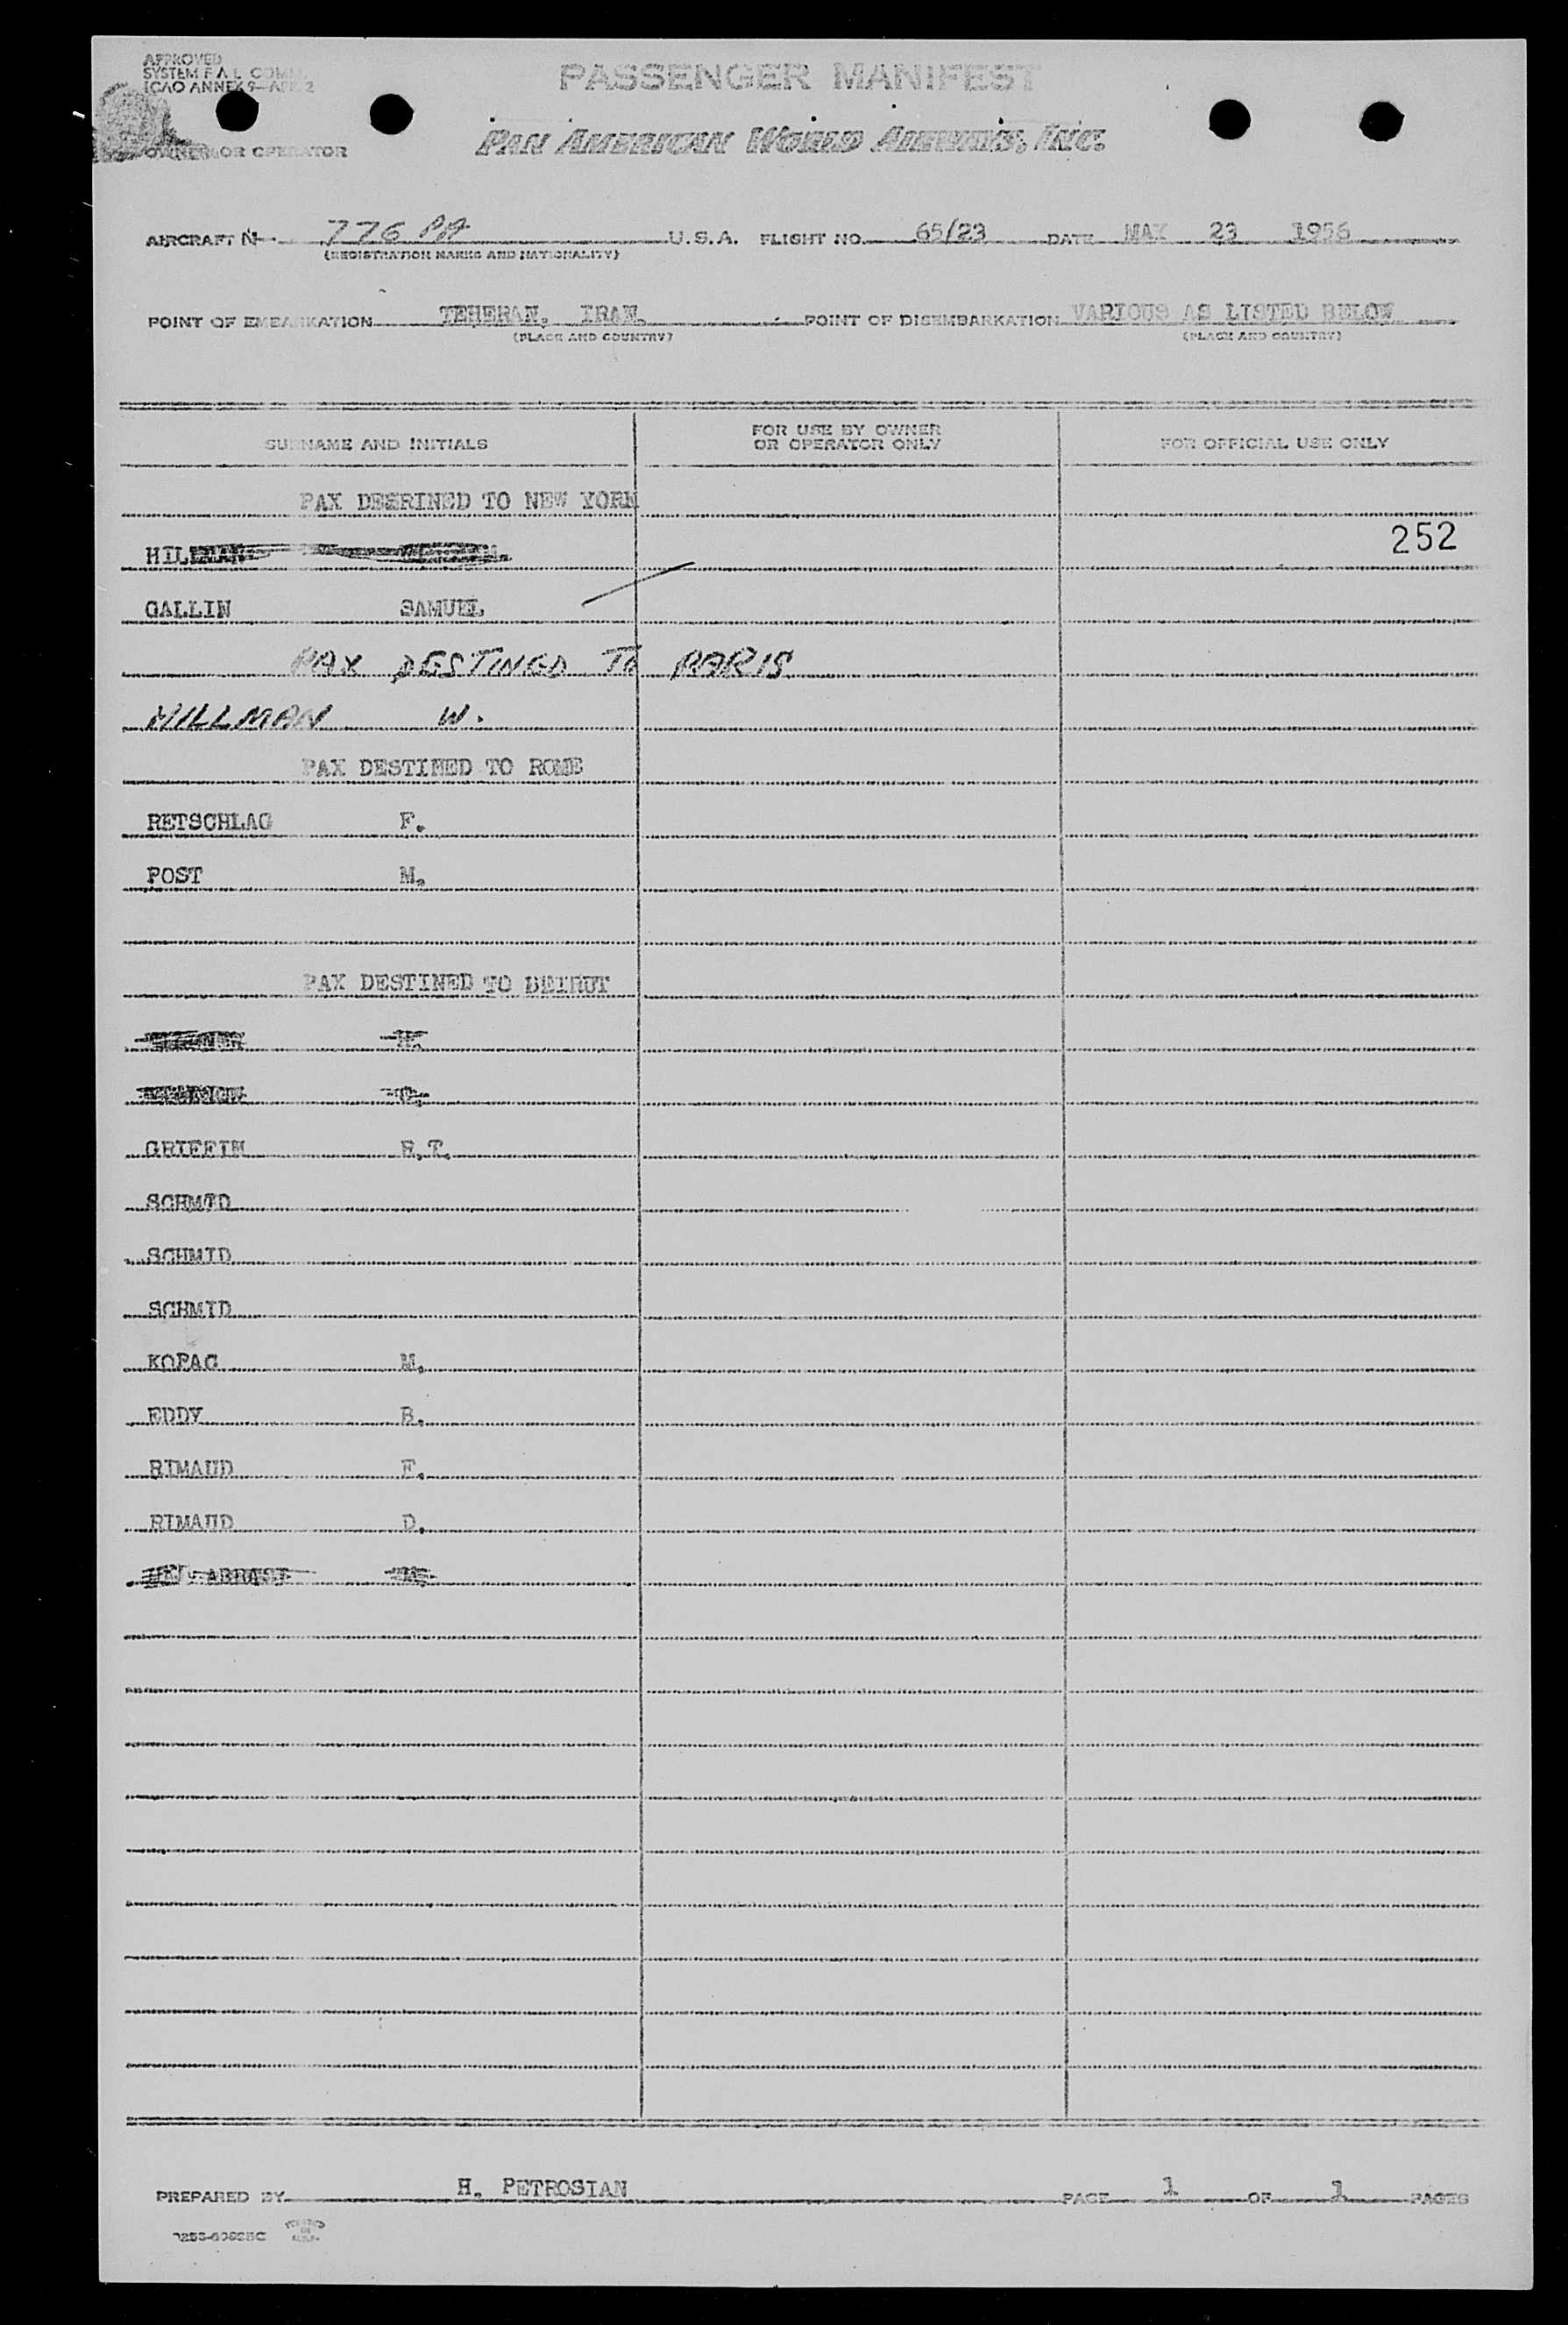 APPROVED
SYSTEM F A L COMM.
ICAO ANNEX 9—APP. 2
PASSENGER MANIFEST
OWNER OR OPERATOR
PAN AMERICAN WORLD AIRWAYS, INC.
AIRCRAFT N 776 PA U.S.A. FLIGHT NO. 65/23 DATE MAY 23 1956
(REGISTRATION MARKS AND NATIONALITY)
POINT OF EMBARKATION TEHERAN, IRAN. POINT OF DISEMBARKATION VARIOUS AS LISTED BELOW
(PLACE AND COUNTRY) (PLACE AND COUNTRY)
SURNAME AND INITIALS FOR USE BY OWNER OR OPERATOR ONLY FOR OFFICIAL USE ONLY
PAX DESRINED TO NEW YORK
HILLMAN 252
GALLIN SAMUEL
PAX DESTINED TO PARIS
HILLMAN W.
PAX DESTINED TO ROME
RETSCHLAG F.
POST M.
PAX DESTINED TO BEIRUT
H.
GRIFFIN R.T.
SCHMID
SCHMID
SCHMID
KOPAC M.
EDDY B.
RIMAUD F.
RIMAUD D.
PREPARED BY H. PETROSIAN PAGE 1 OF 1 PAGES